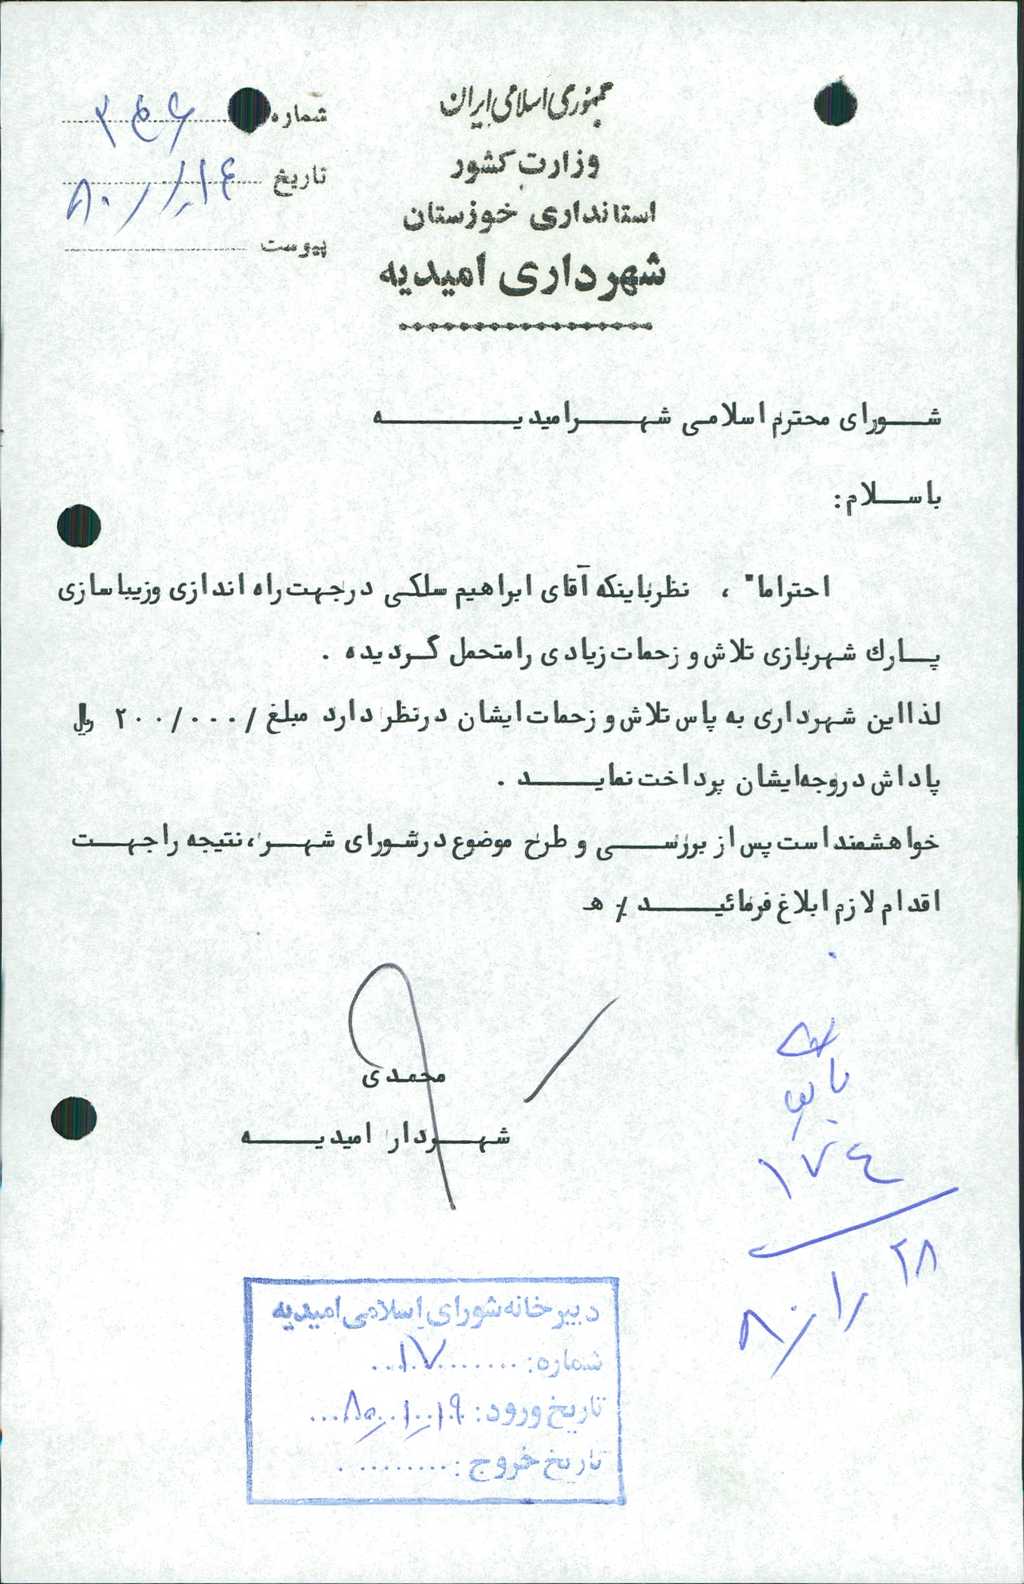 جمهوری اسلامی ایران
وزارت کشور
استانداری خوزستان
شهرداری امیدیه
شماره ۳۵۶
تاریخ ۸۰/۱/۱۴
پیوست
شورای محترم اسلامی شهر امیدیه
با سلام:
احتراما" ، نظر باینکه آقای ابراهیم سلکی در جهت راه اندازی و زیبا سازی
پارك شهربازی تلاش و زحمات زیادی را متحمل گردیده .
لذا این شهرداری به پاس تلاش و زحمات ایشان در نظر دارد مبلغ /۲۰۰/۰۰۰ ریال
پاداش در وجه ایشان پرداخت نماید .
خواهشمند است پس از بررسی و طرح موضوع در شورای شهر، نتیجه را جهت
اقدام لازم ابلاغ فرمائید ./ ه
محمدی
شهردار امیدیه
۱۷۴
۸۰/۱/۲۸
دبیرخانه شورای اسلامی امیدیه
شماره: ۱۷
تاریخ ورود: ۸۰/۱/۱۹
تاریخ خروج: